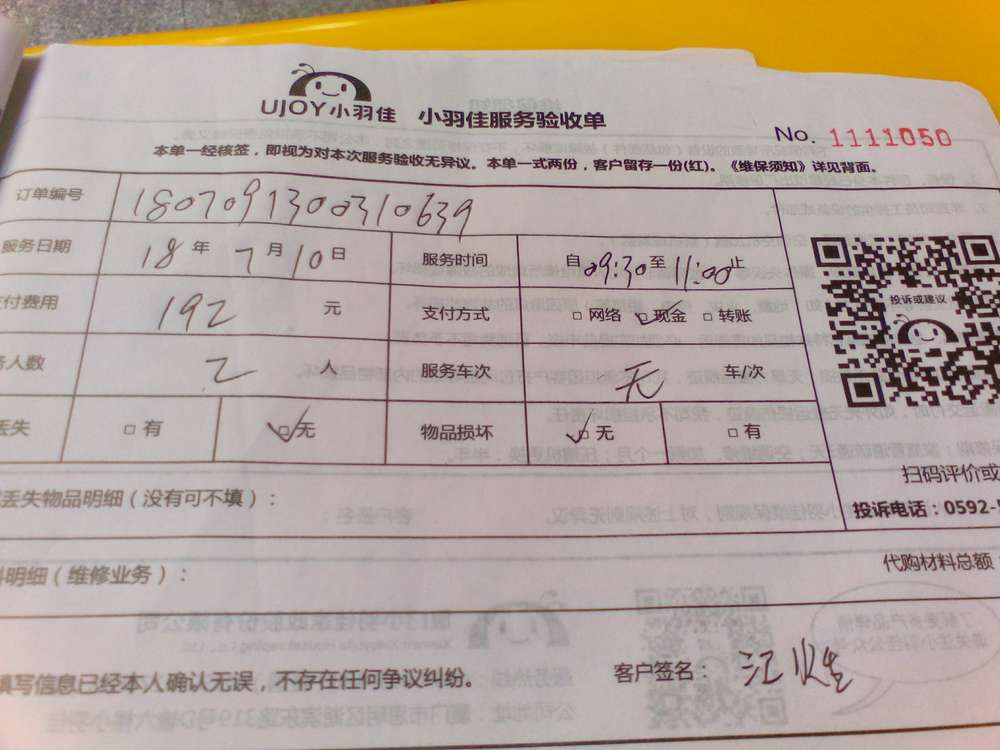 UJOY小羽佳 小羽佳服务验收单
No. 1111050
本单一经核签，即视为对本次服务验收无异议。本单一式两份，客户留存一份(红)。《维保须知》详见背面。
订单编号 1807091300310639
服务日期 18 年 7 月 10 日 服务时间 自 09:30 至 11:00 止
付费用 192 元 支付方式 □ 网络 □ 现金 □ 转账
投诉或建议
人数 2 人 服务车次 无 车/次
丢失 □ 有 □ 无 物品损坏 □ 无 □ 有
扫码评价或
丢失物品明细（没有可不填）：
投诉电话：0592-
明细（维修业务）：
代购材料总额
填写信息已经本人确认无误，不存在任何争议纠纷。
客户签名： 江